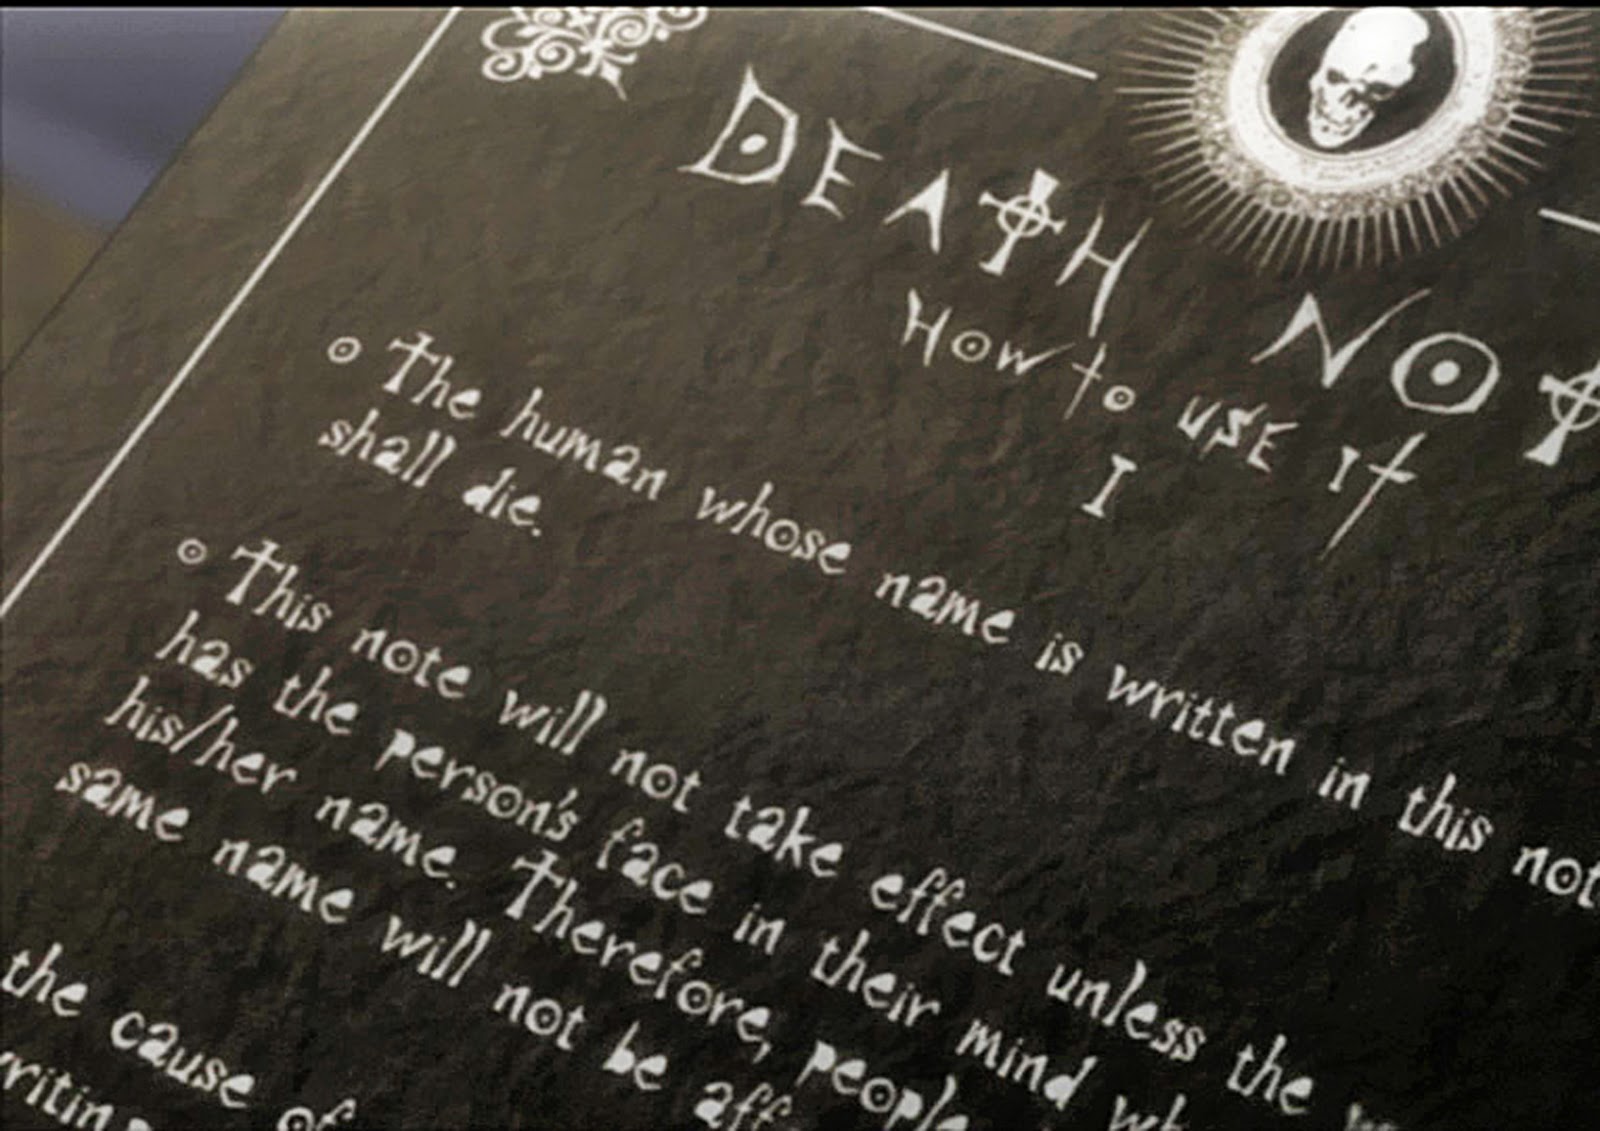 DEATH NOT
HOW to USE IT
I
The human whose name is written in this not
shall die.
This note will not take effect unless the
has the person's face in their mind wh
his/her name. Therefore, people
same name will not be aff
the cause of
writing